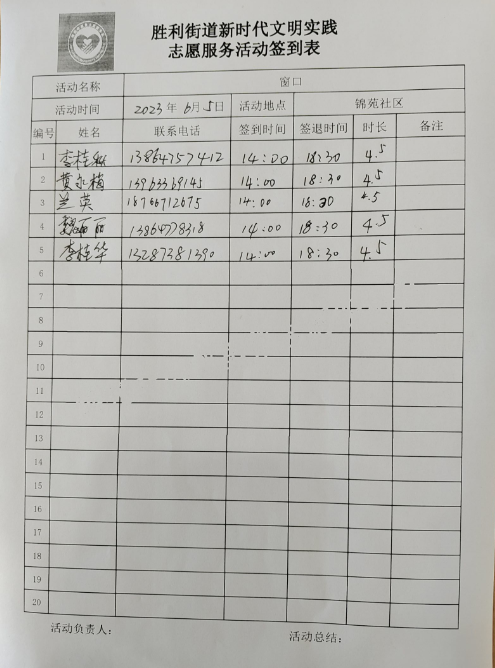 胜利街道新时代文明实践
志愿服务活动签到表
活动名称 窗口
活动时间 2023年6月5日 活动地点 锦苑社区
编号 姓名 联系电话 签到时间 签退时间 时长 备注
1 李桂 13864757412 14:00 18:30 4.5
2 黄永梅 13963369145 14:00 18:30 4.5
3 兰英 18766712675 14:00 18:30 4.5
4 魏丽丽 13864778318 14:00 18:30 4.5
5 李桂华 13287381390 14:00 18:30 4.5
6
7
8
9
10
11
12
13
14
15
16
17
18
19
20
活动负责人: 活动总结: